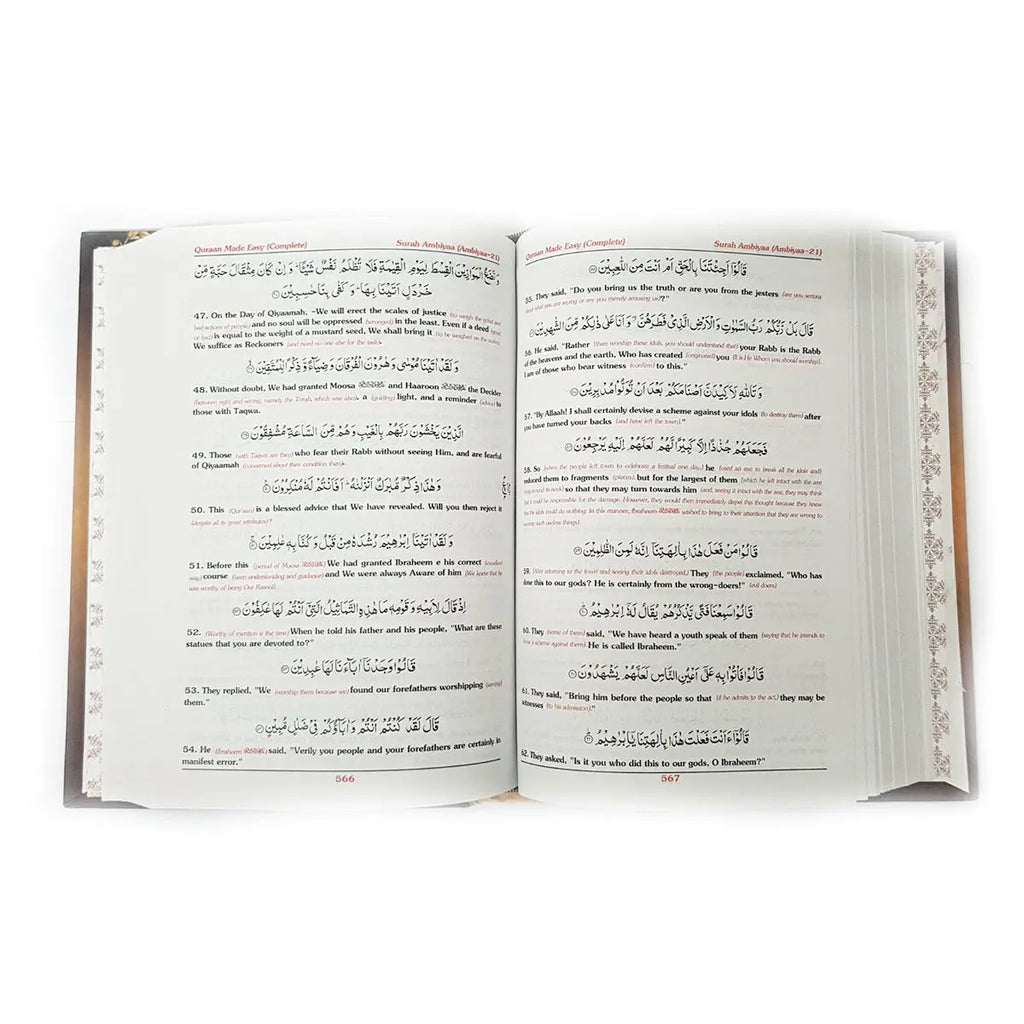 Quraan Made Easy (Complete) Surah Ambiyaa (Ambiyaa-21)
وَ نَضَعُ الْمَوَازِيْنَ الْقِسْطَ لِيَوْمِ الْقِيٰمَةِ فَلَا تُظْلَمُ نَفْسٌ شَيْئًا ؕ وَ اِنْ كَانَ مِثْقَالَ حَبَّةٍ مِّنْ
خَرْدَلٍ اَتَيْنَا بِهَا ؕ وَ كَفٰى بِنَا حٰسِبِيْنَ ۝٤٧
47. On the Day of Qiyaamah, –We will erect the scales of justice (to weigh the good and
bad actions of people) and no soul will be oppressed (wronged) in the least. Even if a deed (good
or bad) is equal to the weight of a mustard seed. We shall bring it (to be weighed on the scales).
We suffice as Reckoners (and need no one else for the task).
وَ لَقَدْ اٰتَيْنَا مُوْسٰى وَ هٰرُوْنَ الْفُرْقَانَ وَ ضِيَآءً وَّ ذِكْرًا لِّلْمُتَّقِيْنَ ۝٤٨
48. Without doubt, We had granted Moosa and Haaroon the Decider
(between right and wrong, namely the Torah, which was also), a (guiding) light, and a reminder (advice) to
those with Taqwa.
الَّذِيْنَ يَخْشَوْنَ رَبَّهُمْ بِالْغَيْبِ وَ هُمْ مِّنَ السَّاعَةِ مُشْفِقُوْنَ ۝٤٩
49. Those (with Taqwa are they) who fear their Rabb without seeing Him, and are fearful
of Qiyaamah (concerned about their condition then).
وَ هٰذَا ذِكْرٌ مُّبٰرَكٌ اَنْزَلْنٰهُ ؕ اَفَاَنْتُمْ لَهٗ مُنْكِرُوْنَ ۝٥٠
50. This (Qur'aan) is a blessed advice that We have revealed. Will you then reject it
(despite all its great attributes)?
وَ لَقَدْ اٰتَيْنَاۤ اِبْرٰهِيْمَ رُشْدَهٗ مِنْ قَبْلُ وَ كُنَّا بِهٖ عٰلِمِيْنَ ۝٥١
51. Before this (period of Moosa) We had granted Ibraheem e his correct (excellent
way) course (keen understanding and guidance) and We were always Aware of him (We knew that he
was worthy of being Our Rasool).
اِذْ قَالَ لِاَبِيْهِ وَ قَوْمِهٖ مَا هٰذِهِ التَّمَاثِيْلُ الَّتِيْۤ اَنْتُمْ لَهَا عٰكِفُوْنَ ۝٥٢
52. (Worthy of mention is the time) When he told his father and his people, "What are these
statues that you are devoted to?"
قَالُوْا وَجَدْنَاۤ اٰبَآءَنَا لَهَا عٰبِدِيْنَ ۝٥٣
53. They replied, "We (worship them because we) found our forefathers worshipping (serving)
them."
قَالَ لَقَدْ كُنْتُمْ اَنْتُمْ وَ اٰبَآؤُكُمْ فِيْ ضَلٰلٍ مُّبِيْنٍ ۝٥٤
54. He (Ibraheem) said, "Verily you people and your forefathers are certainly in
manifest error."
566
Quraan Made Easy (Complete) Surah Ambiyaa (Ambiyaa-21)
قَالُوْۤا اَجِئْتَنَا بِالْحَقِّ اَمْ اَنْتَ مِنَ اللّٰعِبِيْنَ ۝٥٥
55. They said, "Do you bring us the truth or are you from the jesters (are you serious
about what you are saying or are you merely amusing us)?"
قَالَ بَلْ رَّبُّكُمْ رَبُّ السَّمٰوٰتِ وَ الْاَرْضِ الَّذِيْ فَطَرَهُنَّ ؗ وَ اَنَا عَلٰى ذٰلِكُمْ مِّنَ الشّٰهِدِيْنَ ۝٥٦
56. He said, "Rather (than worship these idols, you should understand that) your Rabb is the Rabb
of the heavens and the earth, Who has created (originated) you (It is He Whom you should worship).
I am of those who bear witness (confirm) to this."
وَ تَاللّٰهِ لَاَكِيْدَنَّ اَصْنَامَكُمْ بَعْدَ اَنْ تُوَلُّوْا مُدْبِرِيْنَ ۝٥٧
57. "By Allaah! I shall certainly devise a scheme against your idols (to destroy them) after
you have turned your backs (and have left the town)."
فَجَعَلَهُمْ جُذٰذًا اِلَّا كَبِيْرًا لَّهُمْ لَعَلَّهُمْ اِلَيْهِ يَرْجِعُوْنَ ۝٥٨
58. So (when the people left town to celebrate a festival one day) he (used an axe to break all the idols and)
reduced them to fragments (pieces) but for the largest of them (which he left intact with the axe
hung around its neck) so that they may turn towards him (and, seeing it intact with the axe, they may think
that it could be responsible for the damage. However, they would then immediately dispel this thought because they knew
that the idols could do nothing. In this manner, Ibraheem wished to bring to their attention that they are wrong to
worship such useless things).
قَالُوْا مَنْ فَعَلَ هٰذَا بِاٰلِهَتِنَاۤ اِنَّهٗ لَمِنَ الظّٰلِمِيْنَ ۝٥٩
59. (After returning to the town and seeing their idols destroyed,) They (the people) exclaimed, "Who has
done this to our gods? He is certainly from the wrong-doers!" (evil doers)
قَالُوْا سَمِعْنَا فَتًى يَّذْكُرُهُمْ يُقَالُ لَهٗۤ اِبْرٰهِيْمُ ۝٦٠
60. They (some of them) said, "We have heard a youth speak of them (saying that he intends to
devise a scheme against them). He is called Ibraheem."
قَالُوْا فَاْتُوْا بِهٖ عَلٰۤى اَعْيُنِ النَّاسِ لَعَلَّهُمْ يَشْهَدُوْنَ ۝٦١
61. They said, "Bring him before the people so that (if he admits to the act,) they may be
witnesses (to his admission)."
قَالُوْۤا ءَاَنْتَ فَعَلْتَ هٰذَا بِاٰلِهَتِنَا يٰۤاِبْرٰهِيْمُ ۝٦٢
62. They asked, "Is it you who did this to our gods, O Ibraheem?"
567